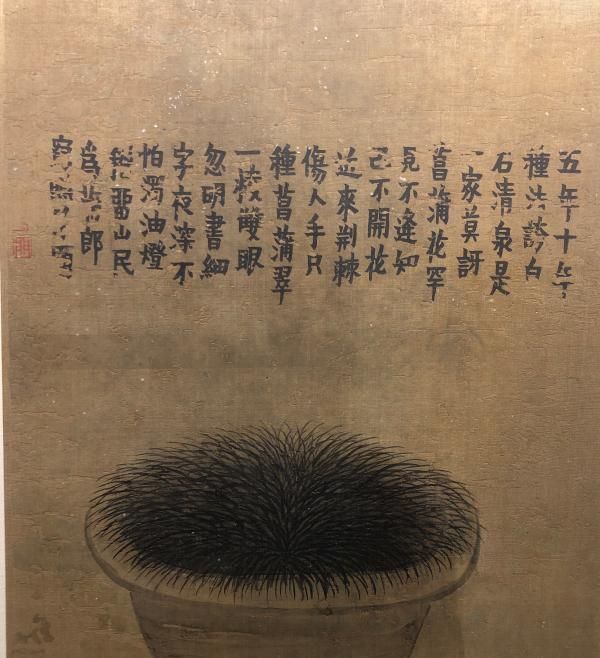 五年十年
種法誇白
石清泉是
一家莫訝
菖蒲花罕
見不逢知
己不開花
近來荊棘
傷人手只
種菖蒲翠
一雙眼
忽明書細
字夜深不
怕濁油燈
山民
郎